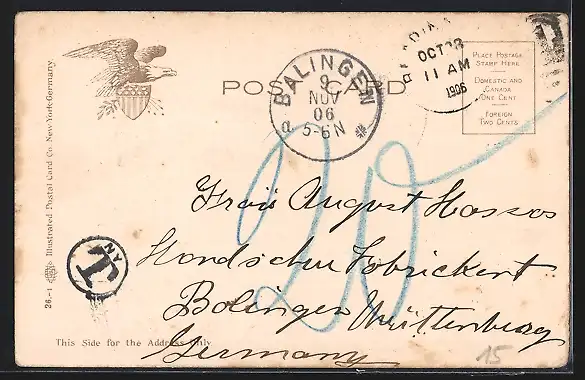 POST CARD
BALINGEN
9
NOV
06
5-6N
OCT 28
11 AM
1906
PLACE POSTAGE
STAMP HERE
DOMESTIC AND
CANADA
ONE CENT
FOREIGN
TWO CENTS
20
Frau August
Handschu Fabrickert
Balingen Württenberg
Germany
NY
T
26.-1 Illustrated Postal Card Co. New-York-Germany.
This Side for the Address Only
15